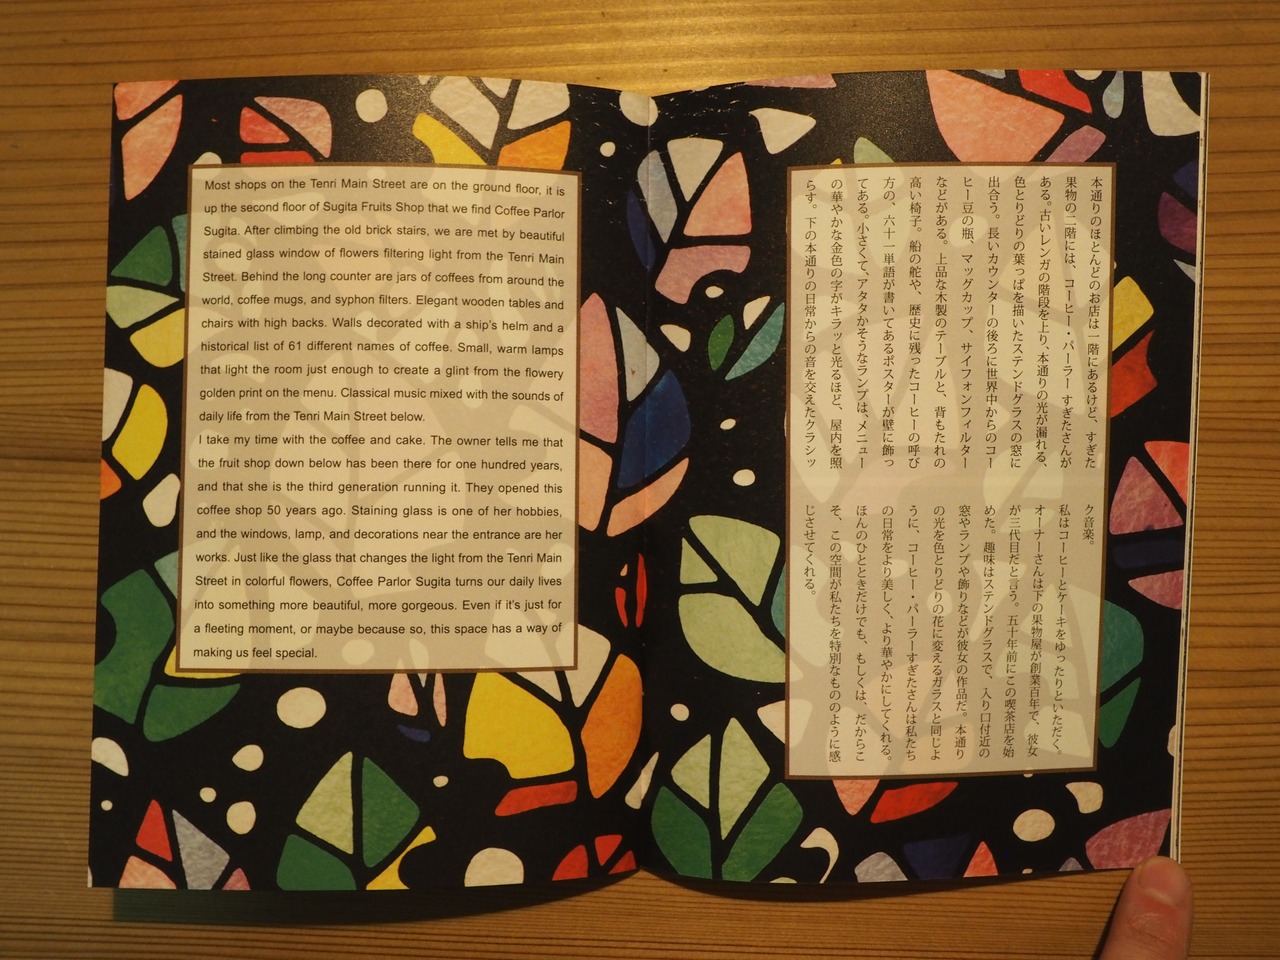 Most shops on the Tenri Main Street are on the ground floor, it is
up the second floor of Sugita Fruits Shop that we find Coffee Parlor
Sugita. After climbing the old brick stairs, we are met by beautiful
stained glass window of flowers filtering light from the Tenri Main
Street. Behind the long counter are jars of coffees from around the
world, coffee mugs, and syphon filters. Elegant wooden tables and
chairs with high backs. Walls decorated with a ship's helm and a
historical list of 61 different names of coffee. Small, warm lamps
that light the room just enough to create a glint from the flowery
golden print on the menu. Classical music mixed with the sounds of
daily life from the Tenri Main Street below.
I take my time with the coffee and cake. The owner tells me that
the fruit shop down below has been there for one hundred years,
and that she is the third generation running it. They opened this
coffee shop 50 years ago. Staining glass is one of her hobbies,
and the windows, lamp, and decorations near the entrance are her
works. Just like the glass that changes the light from the Tenri Main
Street in colorful flowers, Coffee Parlor Sugita turns our daily lives
into something more beautiful, more gorgeous. Even if it's just for
a fleeting moment, or maybe because so, this space has a way of
making us feel special.
本通りのほとんどのお店は一階にあるけど、すぎた
果物の二階には、コーヒー・パーラー すぎたさんが
ある。古いレンガの階段を上り、本通りの光が漏れる、
色とりどりの葉っぱを描いたステンドグラスの窓に
出合う。長いカウンターの後ろに世界中からのコー
ヒー豆の瓶、マッグカップ、サイフォンフィルター
などがある。上品な木製のテーブルと、背もたれの
高い椅子。船の舵や、歴史に残ったコーヒーの呼び
方の、六十一単語が書いてあるポスターが壁に飾っ
てある。小さくて、アタタかそうなランプは、メニュー
の華やかな金色の字がキラッと光るほど、屋内を照
らす。下の本通りの日常からの音を交えたクラシッ
ク音楽。
私はコーヒーとケーキをゆったりといただく。
オーナーさんは下の果物屋が創業百年で、彼女
が三代目だと言う。五十年前にこの喫茶店を始
めた。趣味はステンドグラスで、入り口付近の
窓やランプや飾りなどが彼女の作品だ。本通り
の光を色とりどりの花に変えるガラスと同じよ
うに、コーヒー・パーラーすぎたさんは私たち
の日常をより美しく、より華やかにしてくれる。
ほんのひとときだけでも、もしくは、だからこ
そ、この空間が私たちを特別なもののように感
じさせてくれる。